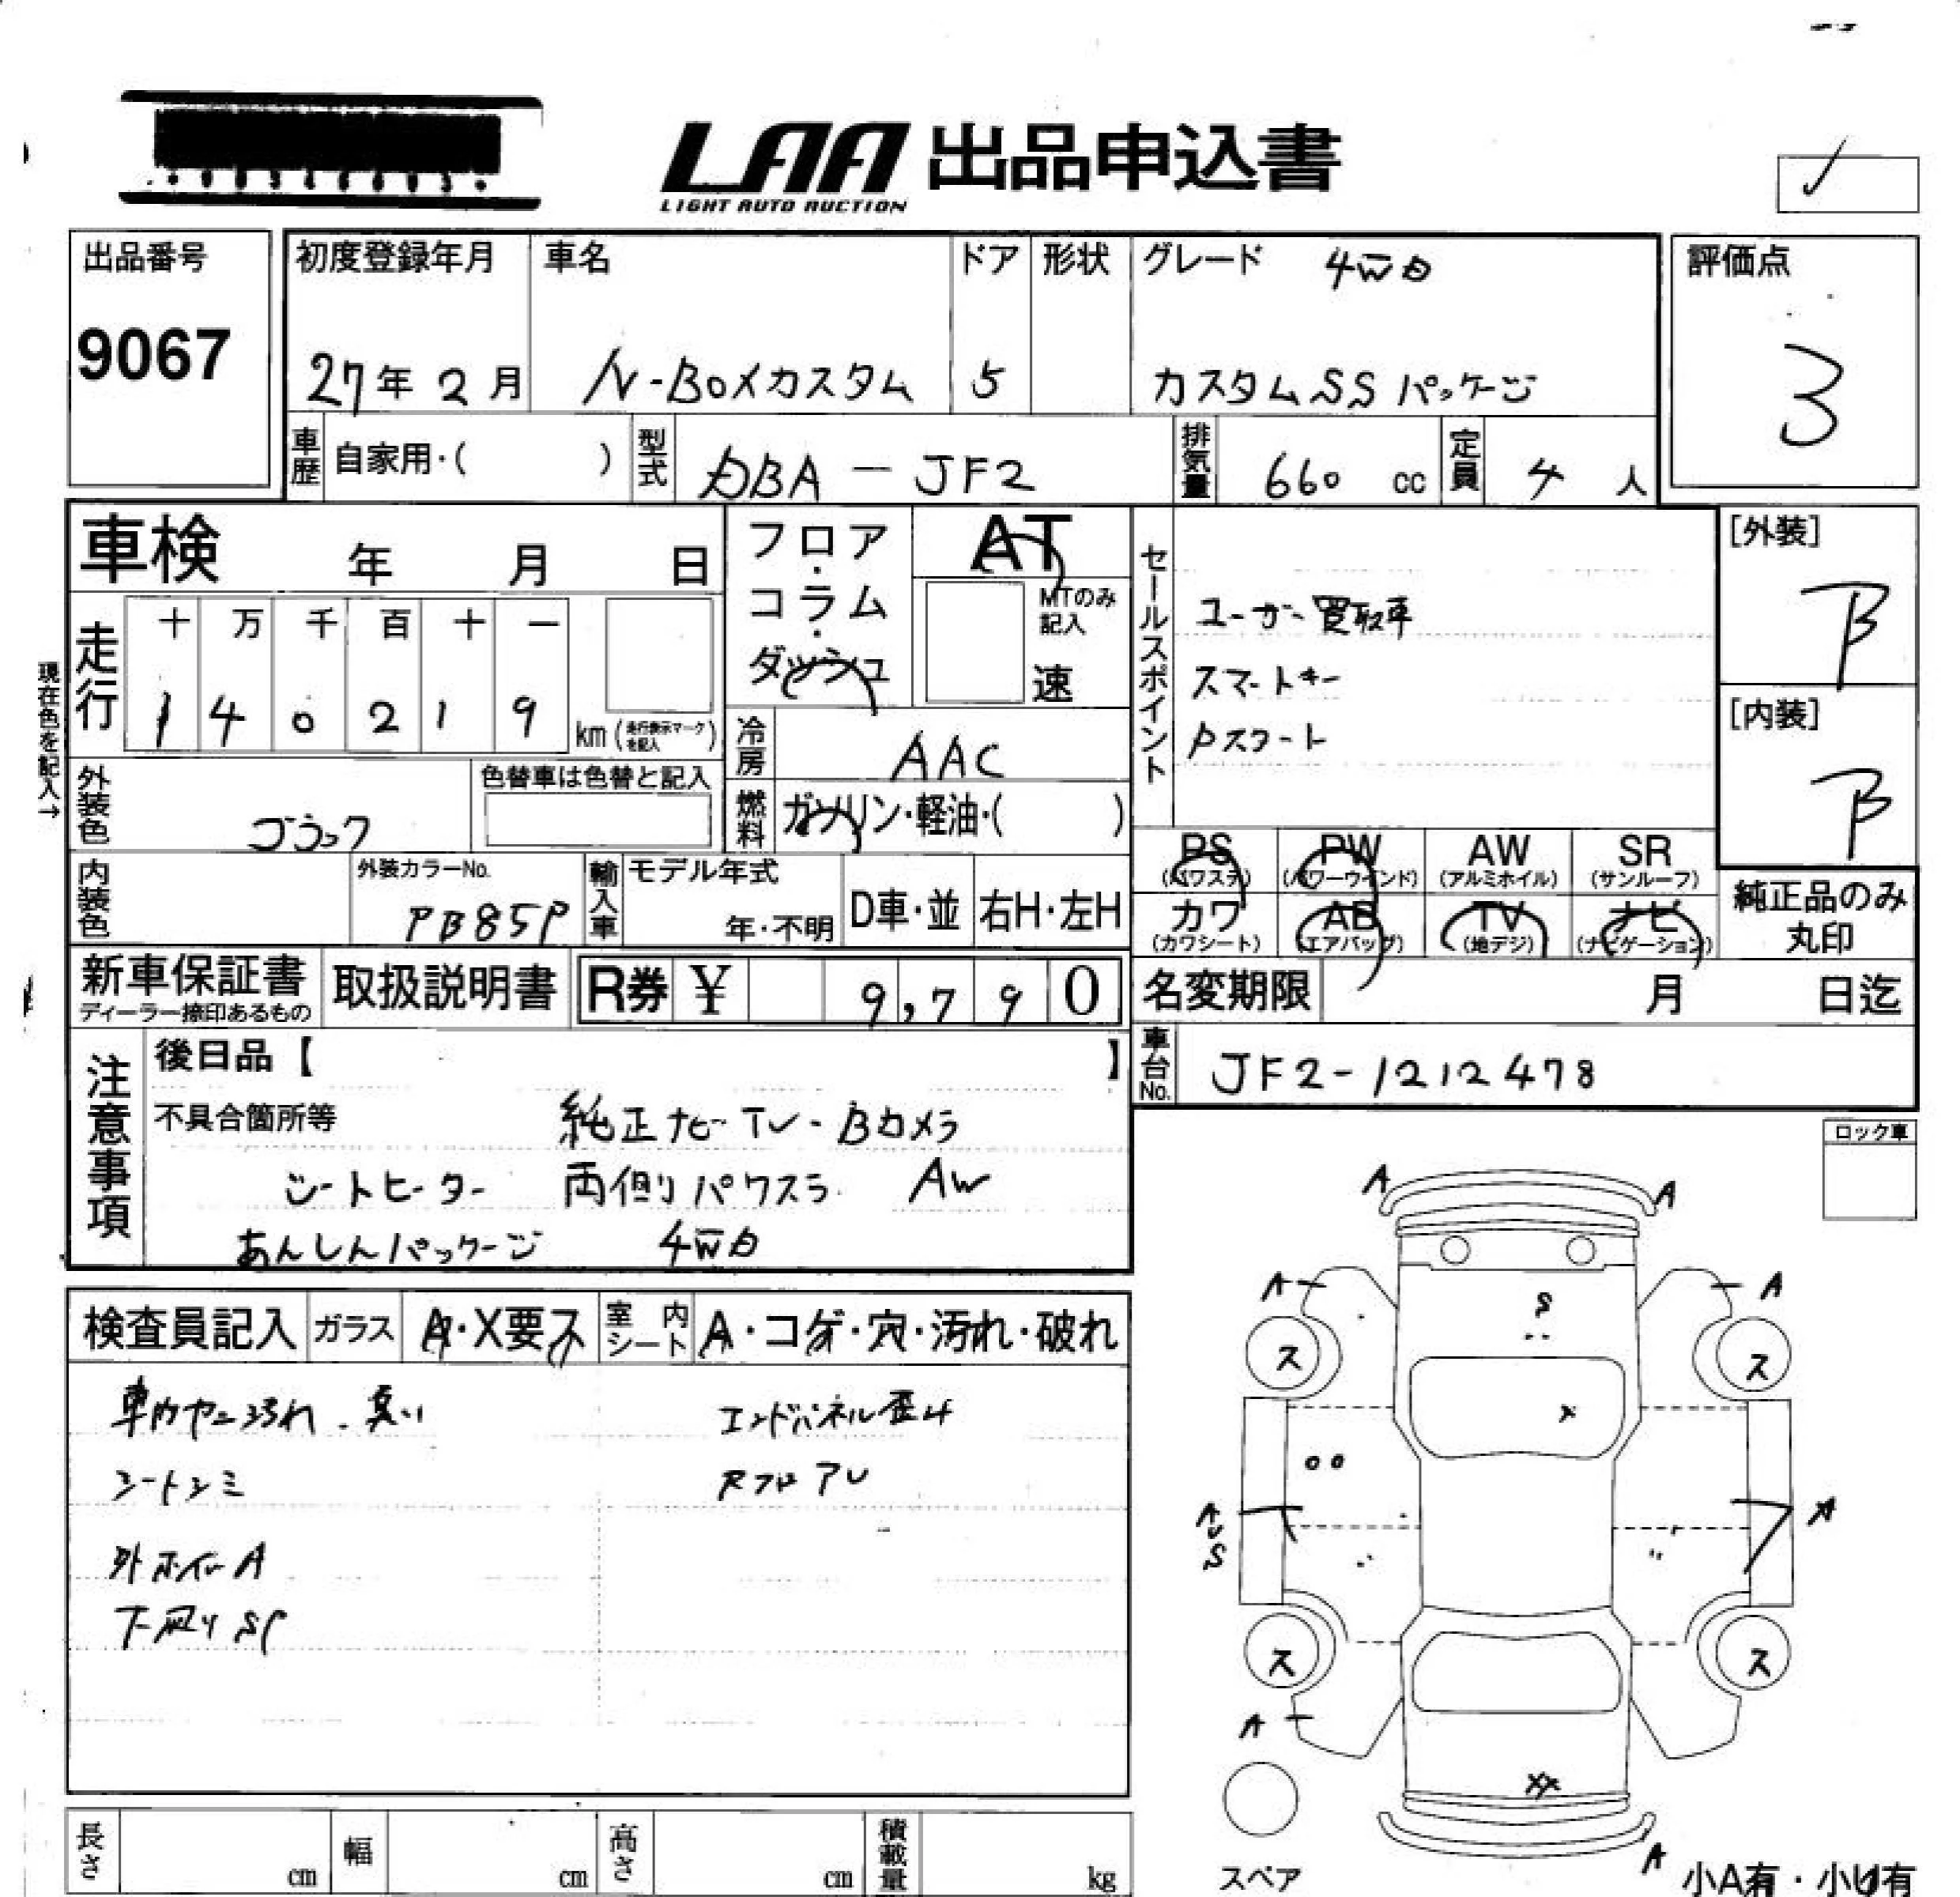 LAA 出品申込書
LIGHT AUTO AUCTION
出品番号
9067
初度登録年月
27年 2月
車名
N-BOXカスタム
ドア
5
形状
グレード 4WD
カスタムSSパッケージ
評価点
3
車歴 自家用・( )
型式 DBA-JF2
排気量 660 cc
定員 4 人
車検 年 月 日
フロア・コラム・ダッシュ
AT
MTのみ記入
速
現在色を記入→
走行
十 万 千 百 十 一
1 4 0 2 1 9
km (走行表示マークを記入)
冷房 AAC
燃料 ガソリン・軽油・( )
外装色 ブラック
色替車は色替と記入
内装色
外装カラーNo.
PB85P
輸入車
モデル年式
年・不明
D車・並
右H・左H
セールスポイント
ユーザー買取車
スマートキー
Pスタート
[外装]
B
[内装]
B
PS (パワステ)
PW (パワーウインド)
AW (アルミホイル)
SR (サンルーフ)
カワ (カワシート)
AB (エアバッグ)
TV (地デジ)
ナビ (ナビゲーション)
純正品のみ丸印
新車保証書
ディーラー捺印あるもの
取扱説明書
R券 ¥ 9,790
名変期限 月 日迄
車台No. JF2-1212478
注意事項
後日品【 】
不具合箇所等
純正ナビ-TV-Bカメラ
シートヒーター 両側パワスラ AW
あんしんパッケージ 4WD
ロック車
検査員記入
ガラス A・X要ス
室内シート A・コゲ・穴・汚れ・破れ
車内ヤニ汚れ、臭い
シートシミ
外ホイルA
下廻りSP
エンドパネル歪み
RフロアU
A A
A A
S
ス ス
X
A U S
A
ス ス
A
XX
A
スペア
小A有・小U有
長さ cm
幅 cm
高さ cm
積載量 kg